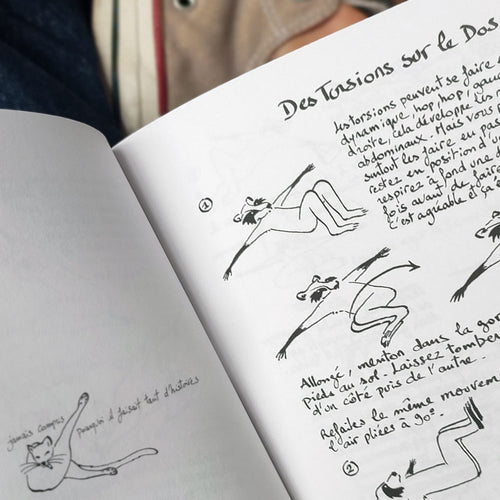 jamais compris
pourquoi il faisait tant d'histoires
Des Torsions sur le Dos
Les torsions peuvent se faire
dynamique, hop, hop! gauc
droite, cela développe les m
abdominaux. Mais vous p
surtout les faire en pas
restez en position d'un
respirez à fond une d
fois avant de faire
c'est agréable et ça é
①
Allongé, menton dans la gor
Pieds au sol. Laissez tomber
d'un côté puis de l'autre.
Refaites le même mouvem
l'air pliées à 90°.
②